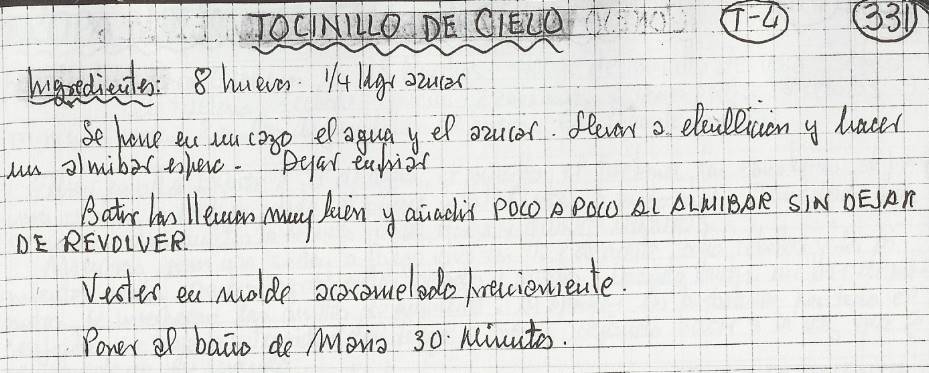 TOCINILLO DE CIELO T-4 331
Ingredientes: 8 huevos. 1/4 kgr azucar
Se pone en un cazo el agua y el azucar. Llevar a ebullicion y hacer
un almibar espeso - Dejar enfriar
Batir los Huevos muy bien y añadir POCO A POCO AL ALMIBAR SIN DEJAR
DE REVOLVER.
Verter en molde acaramelado previamente.
Poner al baño de Maria 30. Minutos.